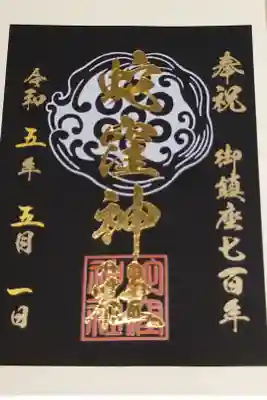 奉祝 御鎮座七百年
蛇窪神
令和五年五月一日